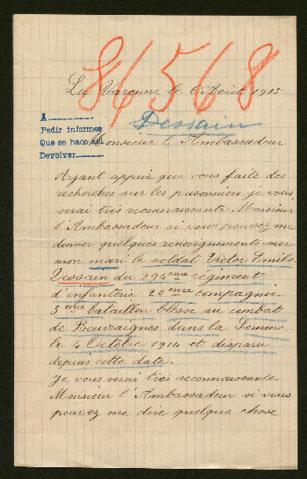 86568
La Varenne le 6 Août 1915
Dessain
A
Pedir informes
Que se hace así
Devolver
Monsieur l'Ambassadeur
Ayant appris que vous faite des
recherches sur les prisonniers je vous
serai très reconnaissante Monsieur
l'Ambassadeur si vous pouvez me
donner quelques renseignements sur
mon mari le soldat Victor Emile
Dessain du 294ème régiment
d'infanterie 20ème compagnie
5ème bataillon blessé au combat
de Bouvraignes dans la Somme
le 4 Octobre 1914 et disparu
depuis cette date.
Je vous serai très reconnaissante
Monsieur l'Ambassadeur si vous
pouvez me dire quelque chose